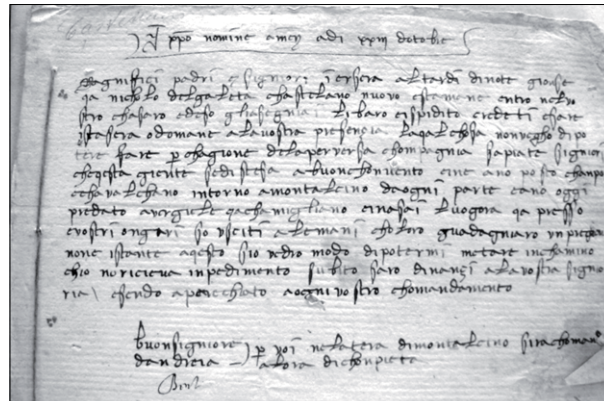 xpo nomine amen adi xxiii dottobre
Magnifici padri e signiori iersera al tardi dinote giose
qa nicholo delghaleta chastelano nuovo estamane entro nelvo
stro chasaro edeso gliasegniai libaro espidito credetti esare
istasera odomane alavostra presencia laqalchosa nonvegho dipo
tere fare per chagione delaperversa chompagnia sapiate signiori
cheqesta giente sedistesa abuonchonvento eine ano posto champo
echavalchano intorno amontalcino daogni parte eano oggi
predato avergiele qachamigliano einasai luogora qa presso
evostri ongari so usciti alemani choloro guadagniaro un pregione
none istante aqesto sio vedro modo dipotermi metare inchamino
chio noricieva inpedimento subito saro dinanzi alavostra signo
ria esendo aparechiato aogni vostro chomandamento
buonsigniore per voi nelatera dimontalcino sirachoman
dandreia alora dichonpieta